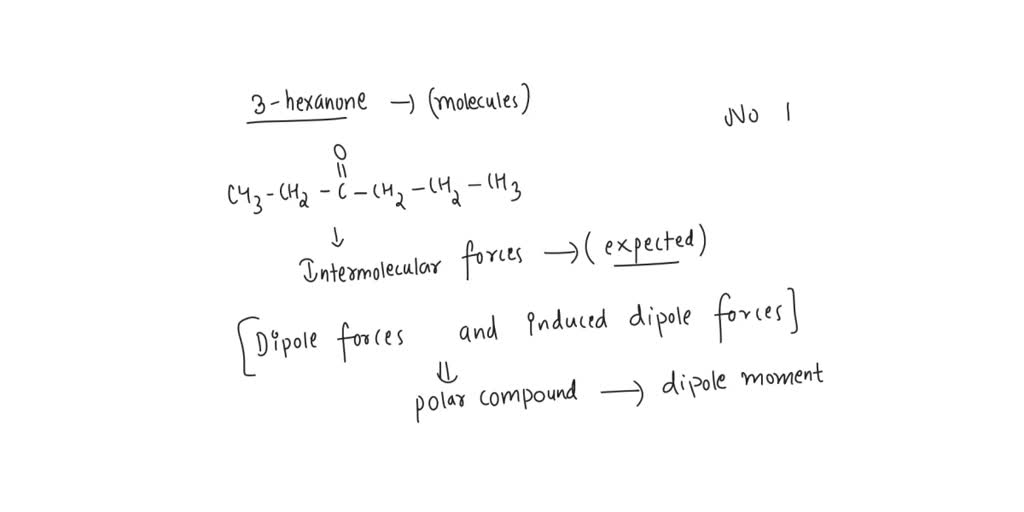 3-hexanone → (molecules)
No 1
O
||
CH3-CH2-C-CH2-CH2-CH3
↓
Intermolecular forces → (expected)
[Dipole forces and induced dipole forces]
⇓
polar compound → dipole moment